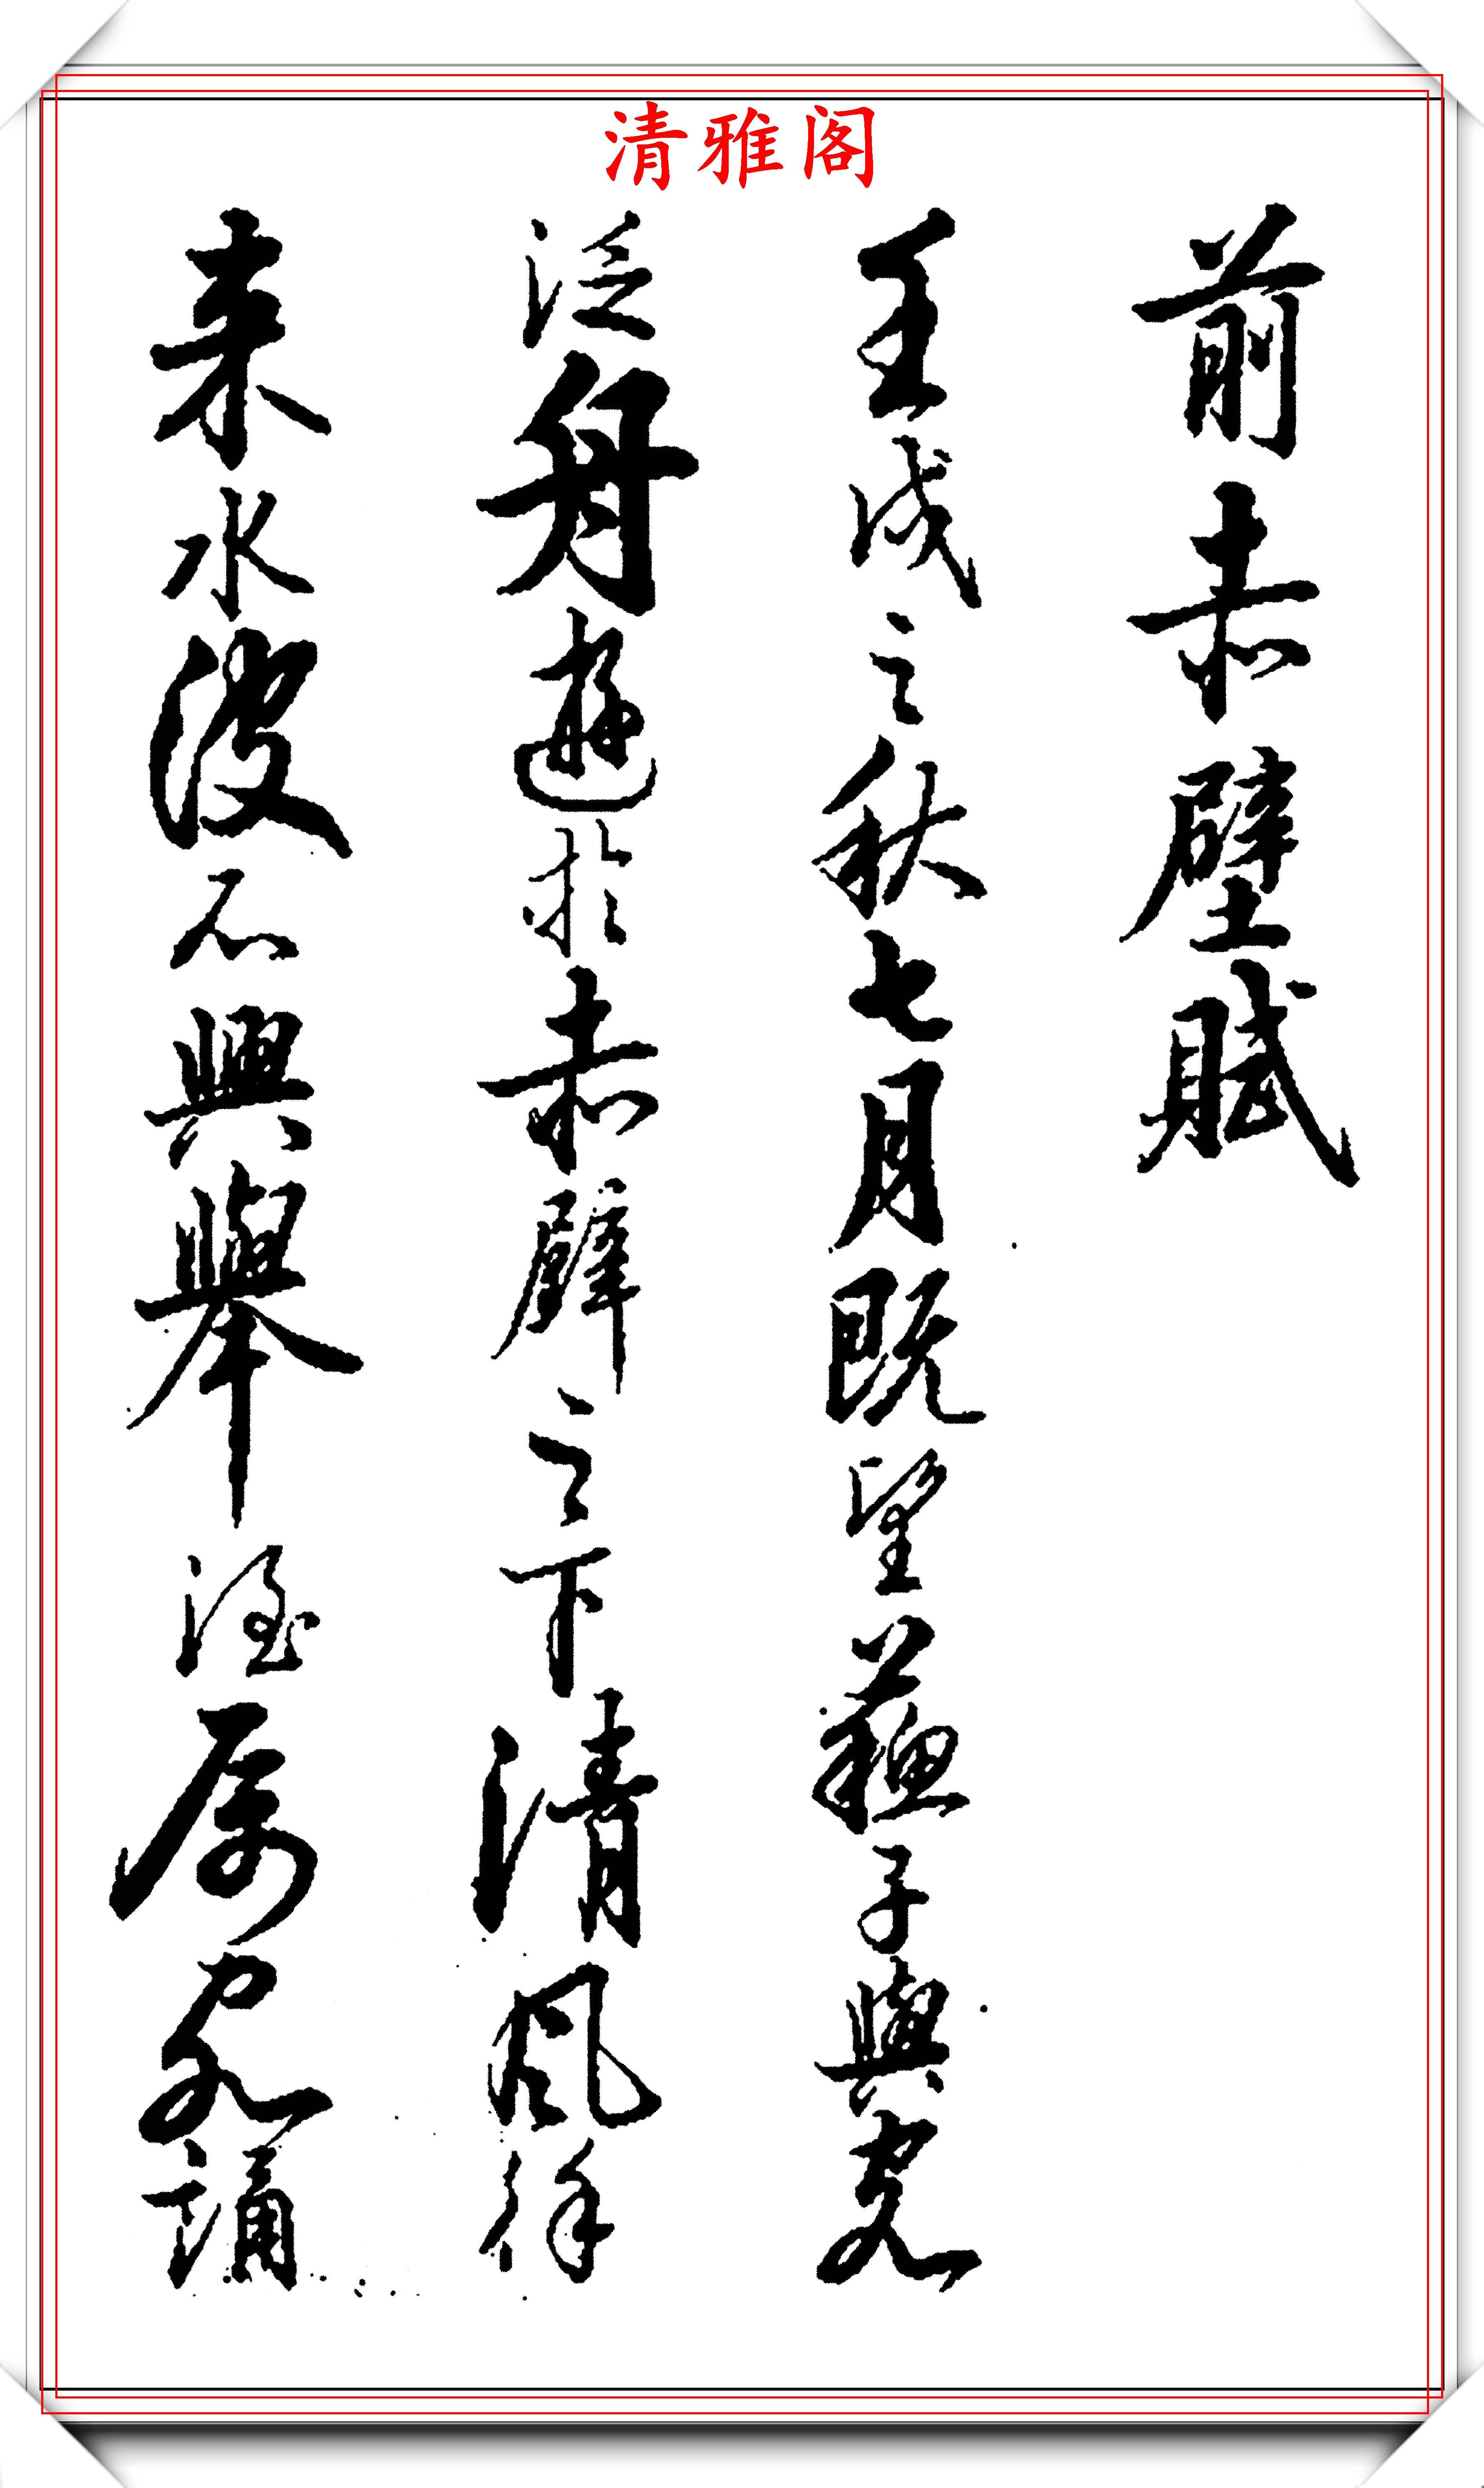 清雅阁
前赤壁賦
壬戌之秋七月既望蘇子與客
泛舟遊於赤壁之下清風徐
来水波不興舉酒屬客誦